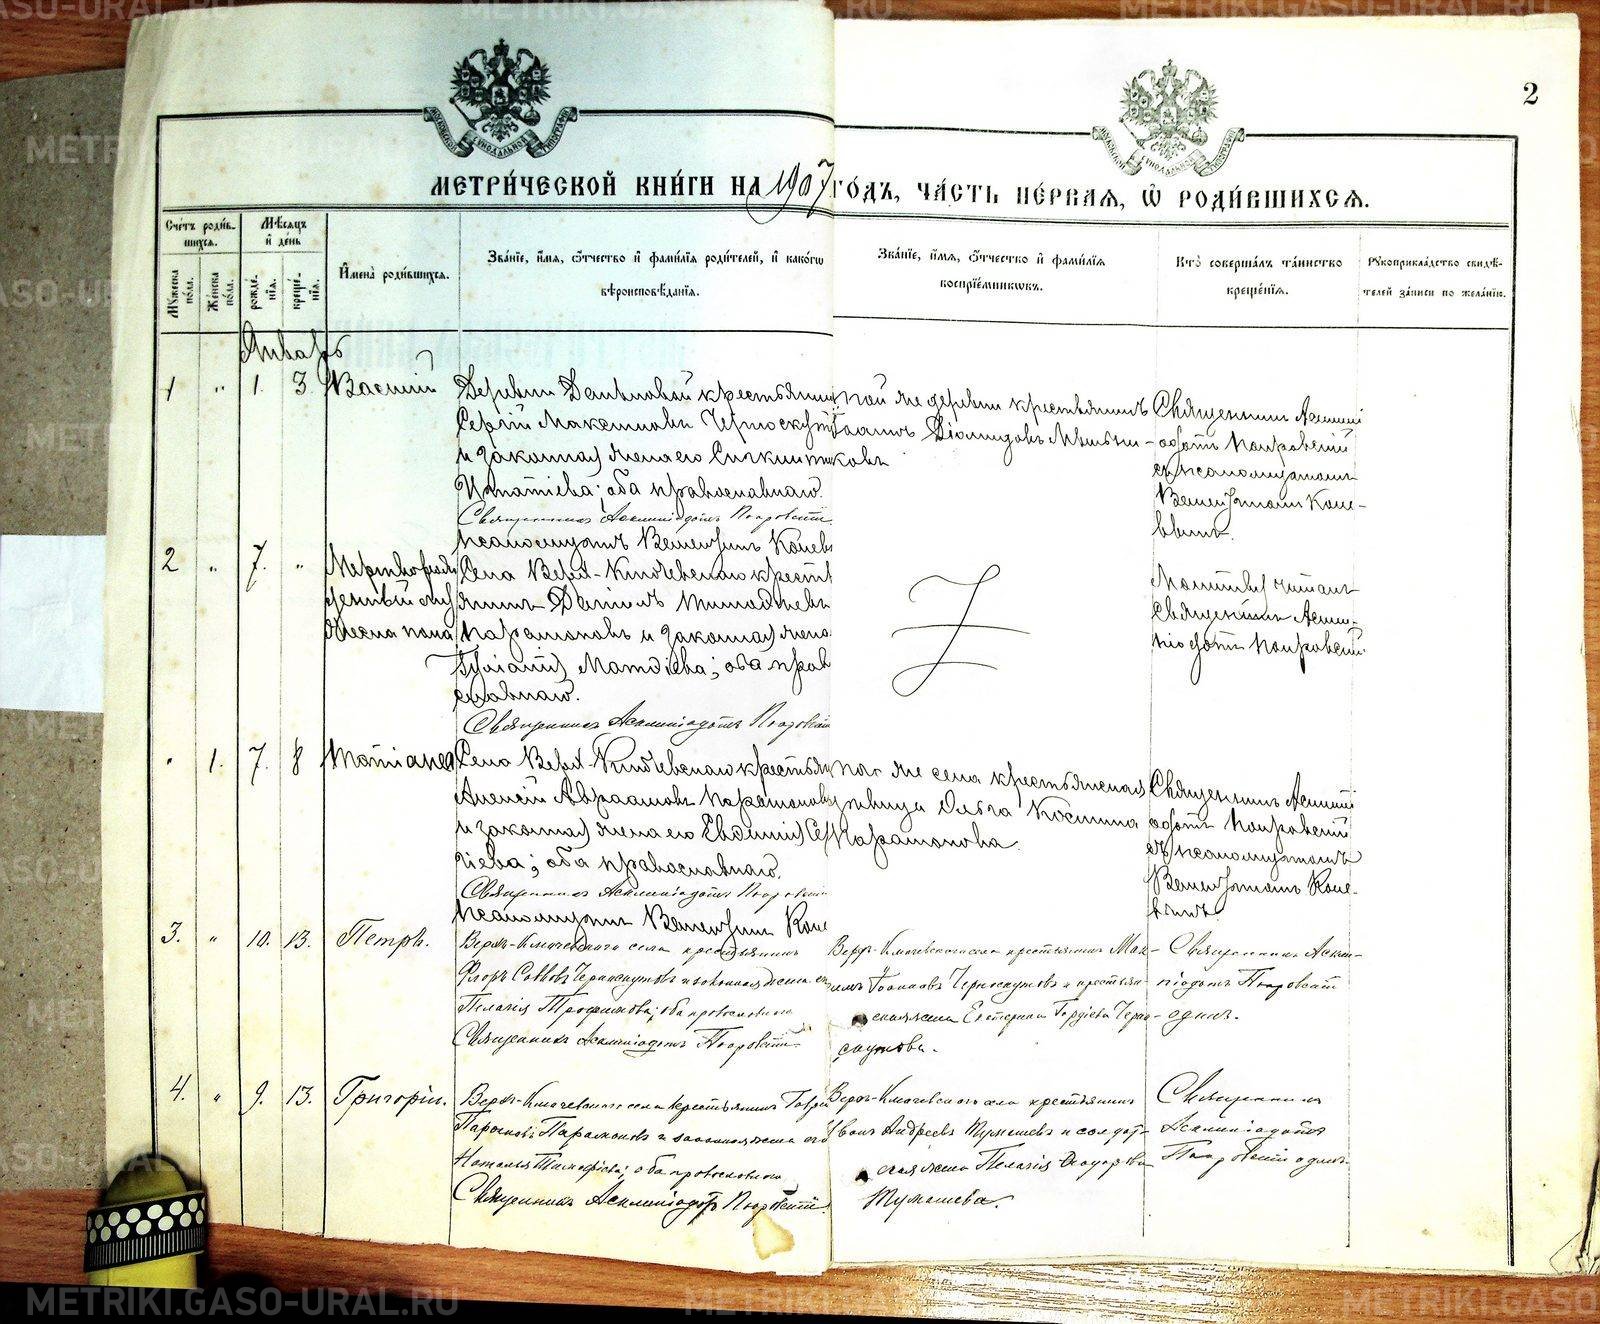 METRIKI.GASO-URAL.RU
2
МЕТРИ́ЧЕСКОЙ КНИ́ГИ НА 1907 ГО́ДЪ, ЧА́СТЬ ПЕ́РВАЯ, Ѡ РОДИ́ВШИХСЯ.
Сче́тъ роди́в-
шихся.
Му́жеска по́ла.
Же́нска по́ла.
Мѣ́сяцъ
и҆ де́нь
рожде́-
нїѧ.
креще́-
нїѧ.
И҆мена̀ роди́вшихся.
Зва́нїе, и҆́мѧ, ѻ҆́тчество и҆ фами́лїѧ роди́телей, и҆ како́гѡ
вѣроисповѣ́данїѧ.
Зва́нїе, и҆́мѧ, ѻ҆́тчество и҆ фами́лїѧ
воспрїе́мникѡвъ.
Кто̀ соверша́лъ та́инство
креще́нїѧ.
Рꙋкоприкла́дство свидѣ́-
телей за́писи по жела́нїю.
Январь
1 " 1. 3. Василій
Деревни крестьянинъ
Сергій Максимовъ
и законная жена его
Игнатіева; оба православнаго.
Священникъ Асклипіодотъ Покровскій
той же деревни крестьянинъ
Іоаннъ Діомидовъ
Священникъ Асклипі-
одотъ Покровскій
съ псаломщикомъ
2 " 7. "
Села Верхъ-Ключевскаго крестья-
янинъ Даніилъ Тимофеевъ
Парамоновъ и законная жена
Матфіева; оба прав
славнаго.
Священникъ Асклипіодотъ Покровскій
Молитву читалъ
Священникъ Аскли-
піодотъ Покровскій
" 1. 7. 8 Татіана
Села Верхъ-Ключевскаго крестьян
Алексій Авраамовъ Парамоновъ
и законная жена его Евдокія
оба православнаго.
Священникъ Асклипіодотъ Покровскій
той же села крестьянская
дѣвица Ольга Космина
Парамонова
Священникъ Асклипі
одотъ Покровскій
съ псаломщикомъ
3. " 10. 13. Петръ.
Верхъ-Ключевского села крестьянинъ
Флоръ Саввовъ Черноскутовъ и законная жена его
Пелагія Трофимова; оба православнаго
Священникъ Асклипіодотъ Покровскій
Верхъ-Ключевского села крестьянинъ Мак-
имъ Іоанновъ Черноскутовъ и крестьян-
ская жена Екатерина Гордіева Черно-
скутова.
Священникъ Аскли-
піодотъ Покровскій
одинъ.
4. " 9. 13. Григорій.
Верхъ-Ключевского села крестьянинъ
Парамоновъ и законная жена его
Наталья Тимофеева; оба православнаго
Священникъ Асклипіодотъ Покровскій
Верхъ-Ключевского села крестьянинъ
Иванъ Андреевъ Тумашевъ и солдат-
ская жена Пелагія Феодорова
Тумашева.
Священникъ
Асклипіодотъ
Покровскій одинъ.
METRIKI.GASO-URAL.RU